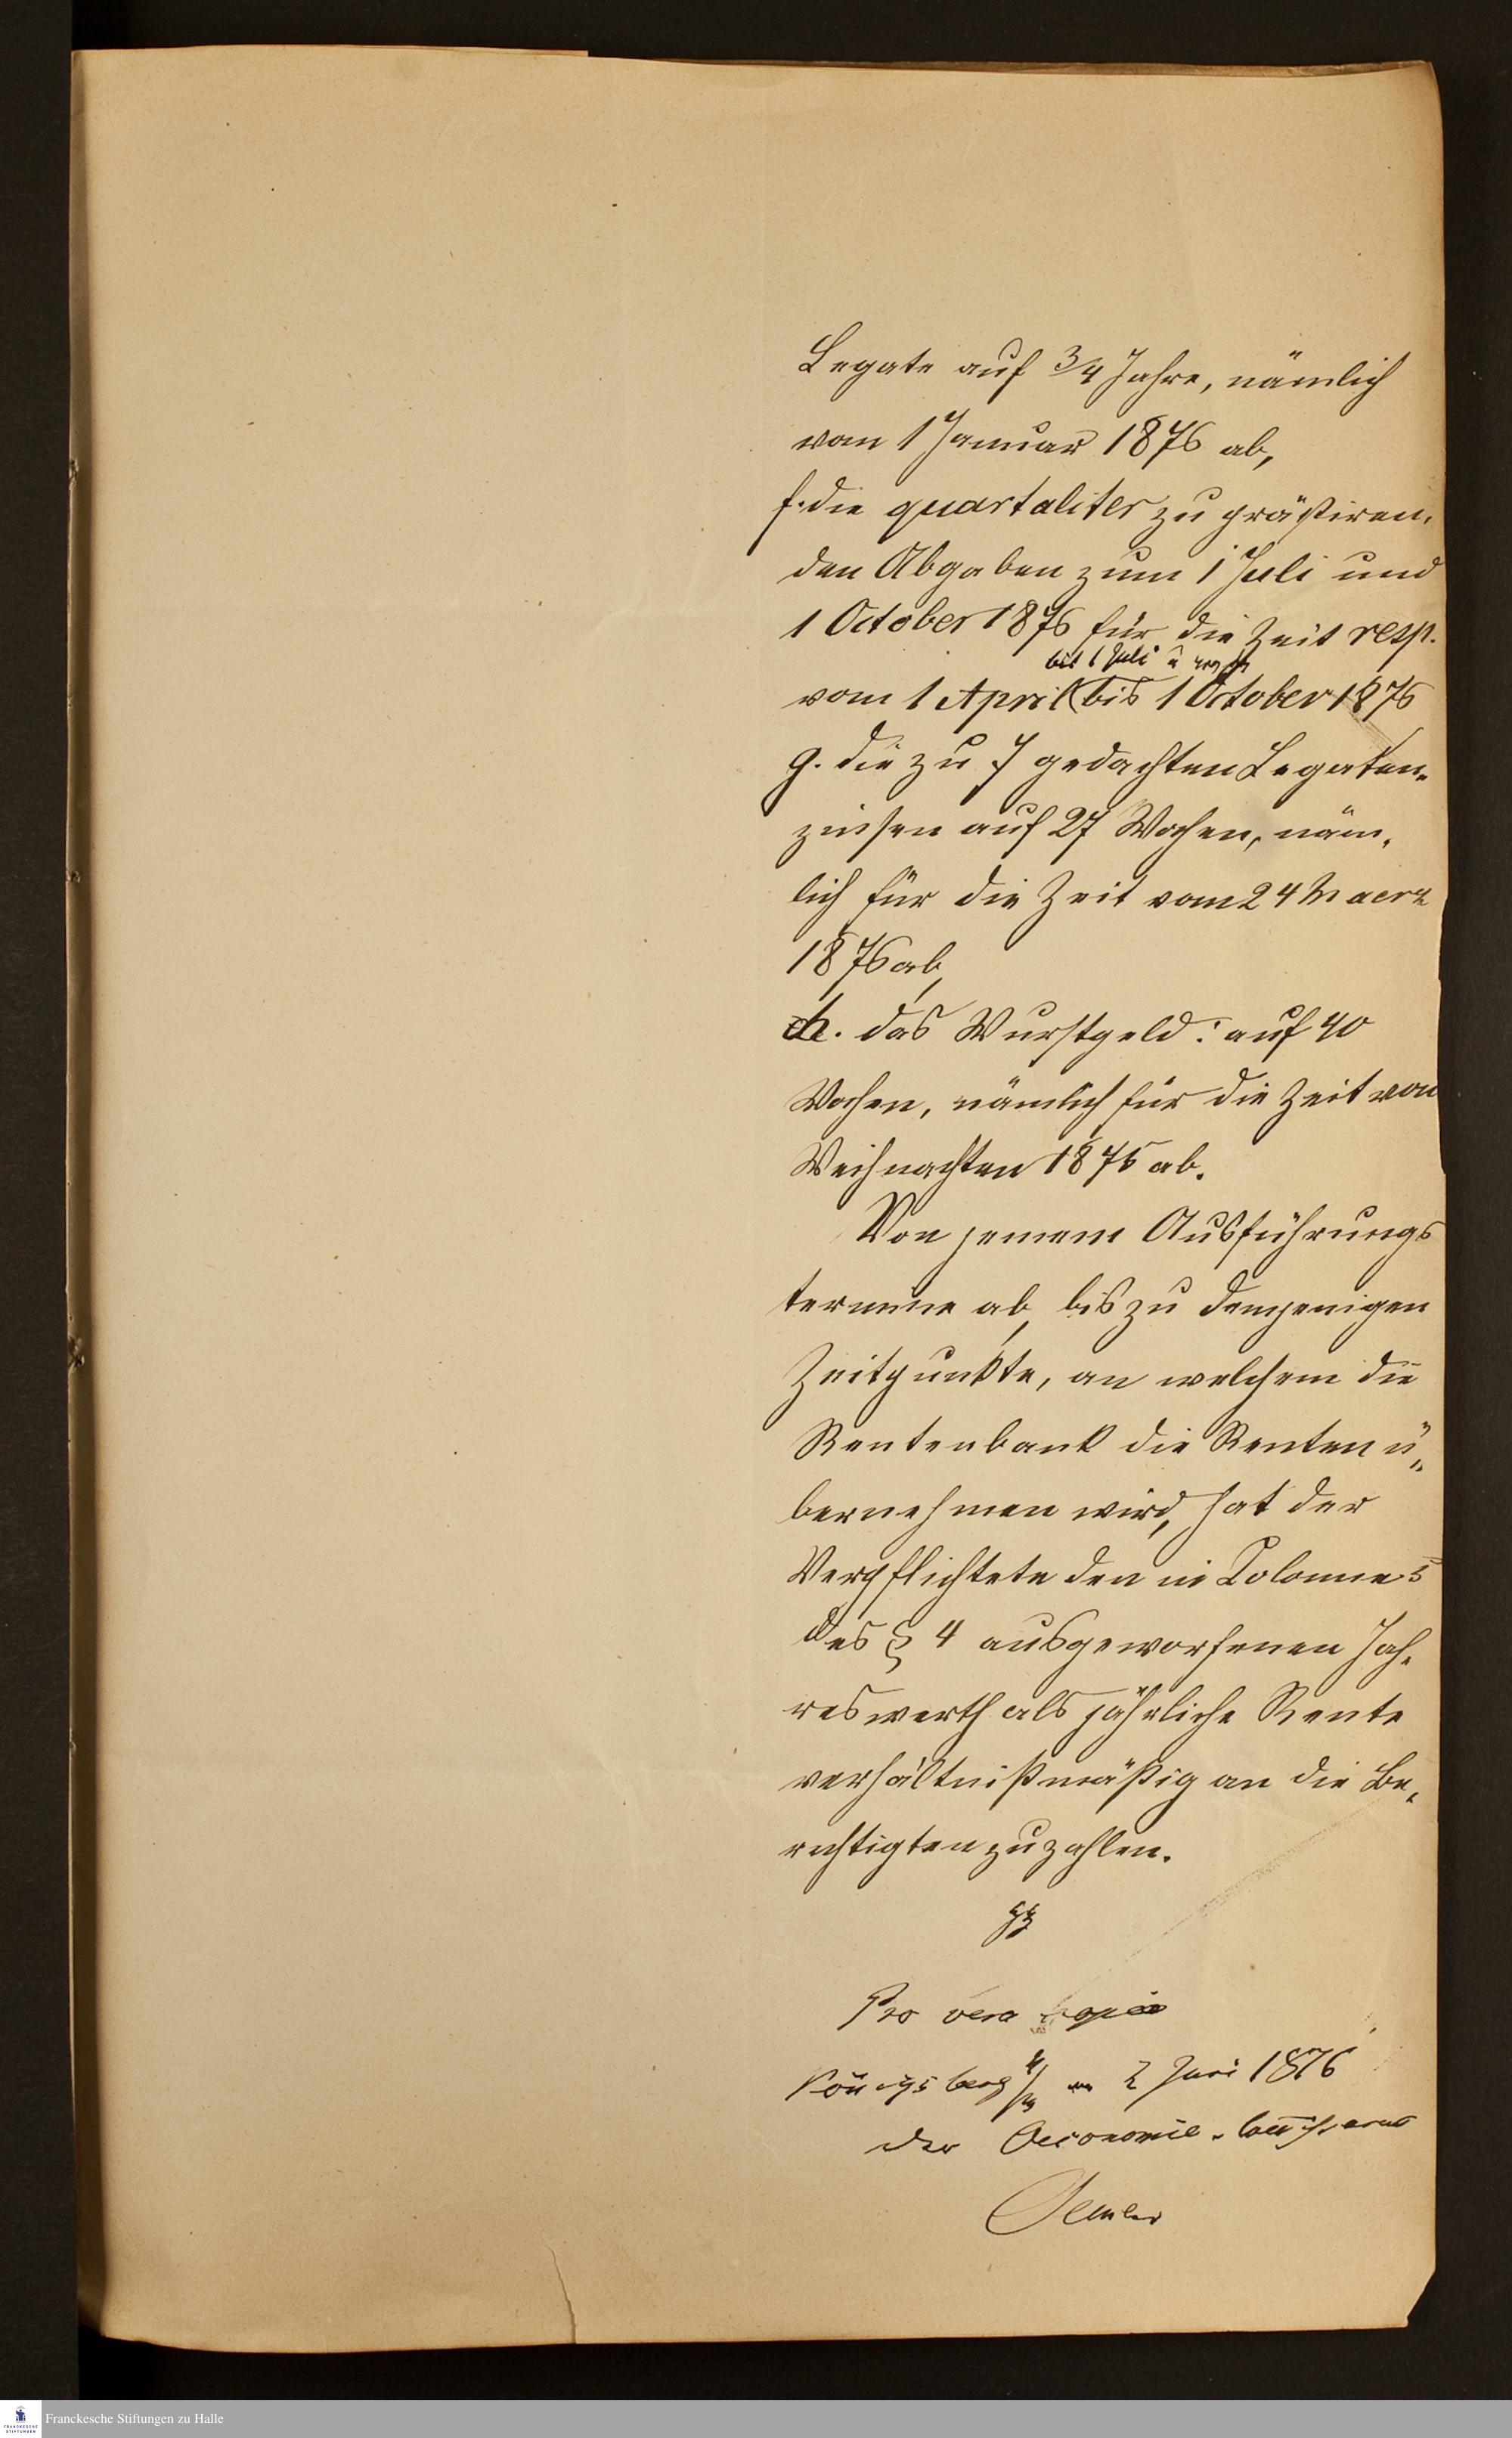 Legate auf 3/4 Jahre, nämlich
vom 1 Januar 1876 ab,
f. die quartaliter zu prästiren-
den Abgaben zum 1 Juli und
1 October 1876 für die Zeit resp.
bis 1 Juli u.
vom 1 April bis 1 October 1876
g. die zu 7 gedachten Legaten-
zinsen auf 27 Wochen, näm-
lich für die Zeit vom 24 Maerz
1876 ab,
h. das Wurstgeld: auf 40
Wochen, nämlich für die Zeit von
Weihnachten 1875 ab.
Von jenem Ausführungs
termine ab, bis zu demjenigen
Zeitpunkte, an welchem die
Rentenbank die Renten ü-
bernehmen wird, hat der
Verpflichtete den in Colonne 5
des § 4 ausgeworfenen Jah-
reswerth als jährliche Rente
verhältnißmäßig an die Be-
rechtigten zu zahlen.
Pro vera copia
Königsberg n/m 2 Juni 1876
Der Oeconomie-Commissarius
Franckesche Stiftungen zu Halle